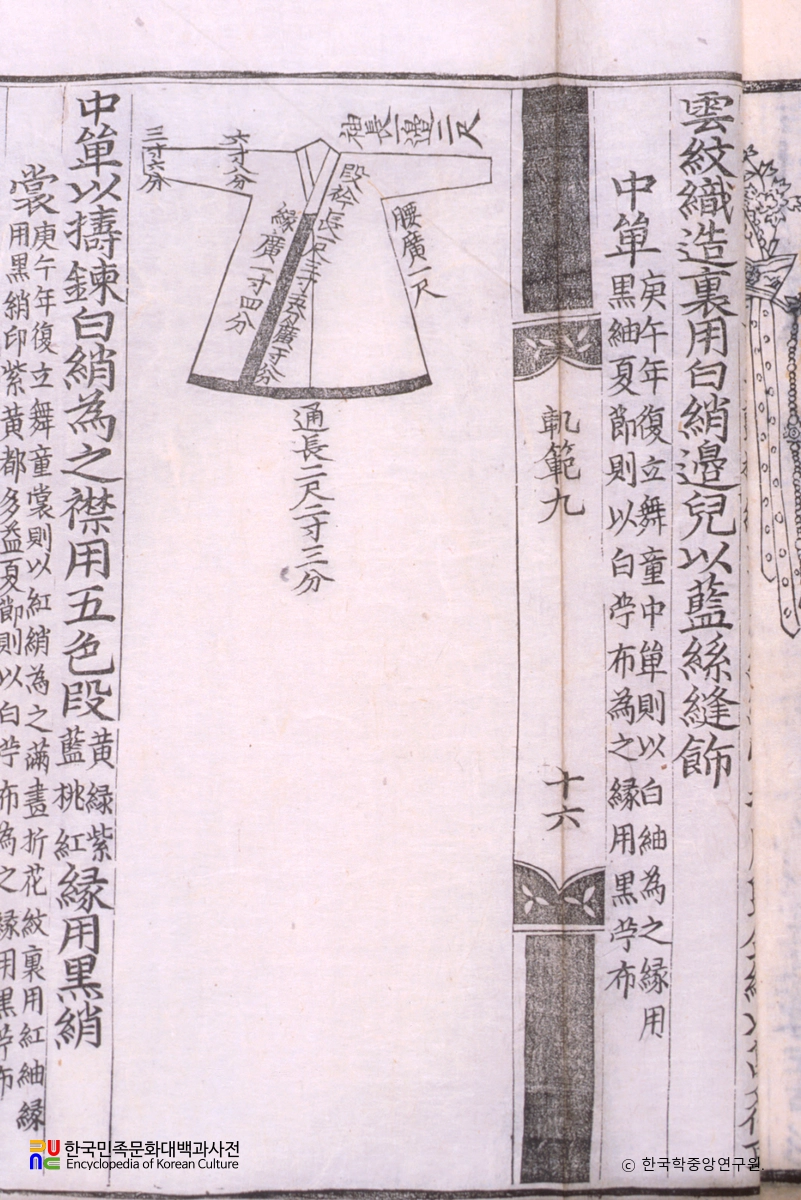 雲紋織造裏用白綃邉兒以藍絲縫飾
中單
庚午年復立舞童中單則以白紬為之緣用
黑紬夏節則以白苧布為之緣用黑苧布
軌範九
十六
袖長一邉二尺
六寸八分
三寸六分
腰廣一尺
緣廣一寸四分
通長二尺二寸三分
中單以擣鍊白綃為之襟用五色段
黃綠紫
藍桃紅
緣用黑綃
裳
庚午年復立舞童裳則以紅綃為之滿畫折花紋裏用紅紬緣
用黑綃印紫黃都多益夏節則以白苧布為之緣用黑苧布
한국민족문화대백과사전
Encyclopedia of Korean Culture
© 한국학중앙연구원